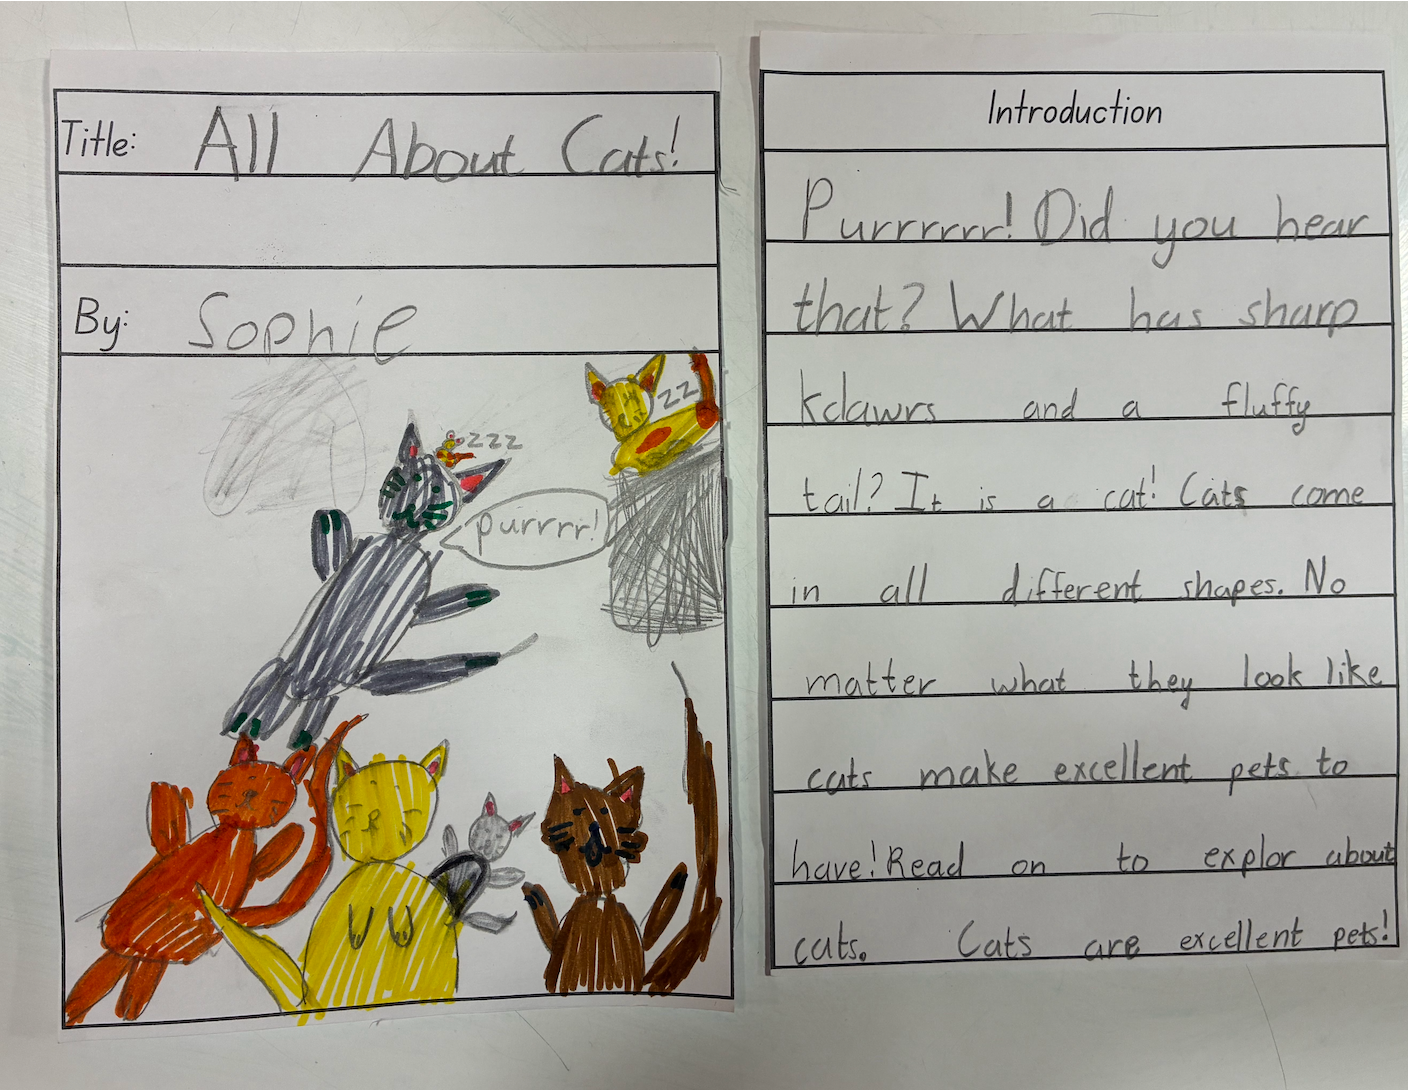 Title: All About Cats!
By: Sophie
zzz
zz
purrrr!
Introduction
Purrrrrr! Did you hear
that? What has sharp
kclawrs and a fluffy
tail? It is a cat! Cats come
in all different shapes. No
matter what they look like
cats make excellent pets to
have! Read on to explor about
cats. Cats are excellent pets!